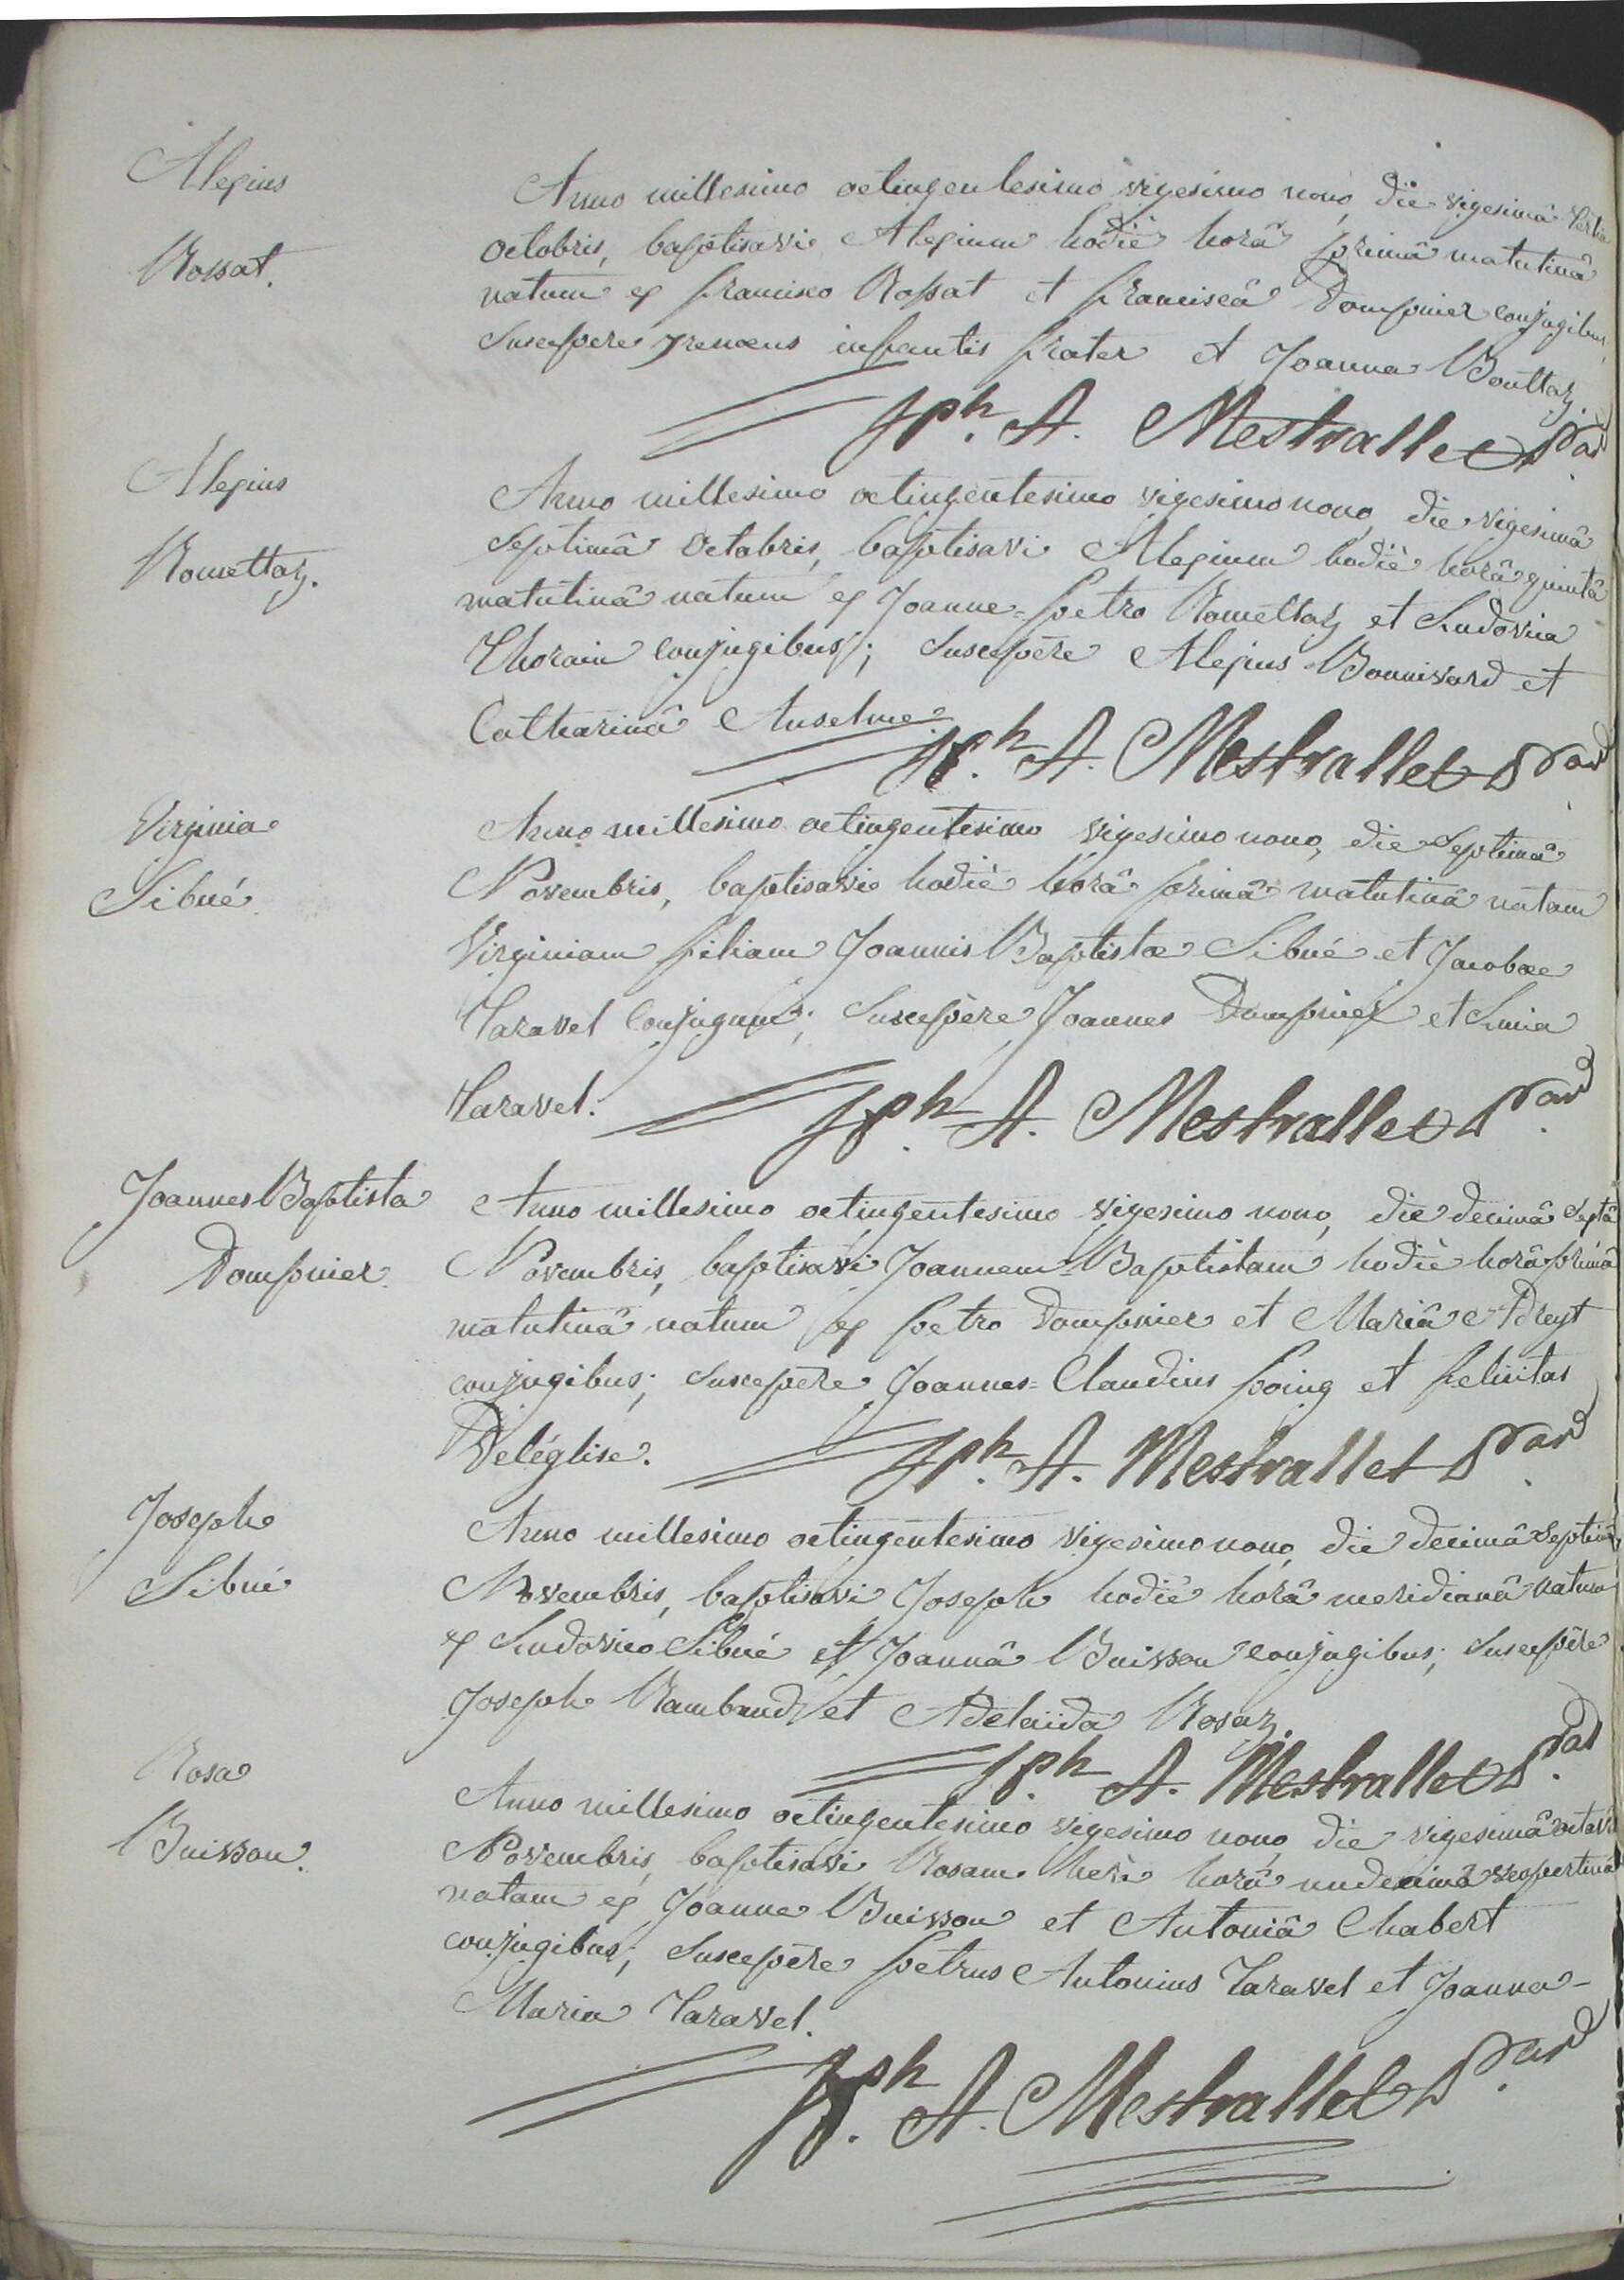 Alexius
Rossat.
Anno millesimo octingentesimo vigesimo nono, die vigesimâ tertia
octobris, baptisavi Alexium hodiè horâ primâ matutinâ
natum ex francisco Rossat et franciscâ Dompnier conjugibus,
Suscepere yrenœus infantis frater et Joanna Bouttaz.
Jph. A. Mestrallet
Alexius
Romettaz.
Anno millesimo octingentesimo vigesimo nono, die vigesimâ
Septimâ Octobris, baptisavi Alexium hodiè horâ quintâ
matutinâ natum ex Joanne=petro Romettaz et Ludovica
Thorain conjugibus; Suscepère Alexius Bonnivard et
Catharinâ Anselme.
Jph. A. Mestrallet
Virginia
Sibué
Anno millesimo octingentesimo vigesimo nono, die Septimâ
Novembris, baptisavi hodiè horâ primâ matutinâ natam
Virginiam filiam Joannis Baptistæ Sibué et Jacobæ
Taravel Conjugum; Suscepère Joannes Dompnier et
Taravel.
Jph. A. Mestrallet
Joannes Baptista
Dompnier
Anno millesimo octingentesimo vigesimo nono, die decimâ Septâ
Novembris, baptisavi Joannem=Baptistam hodiè horâ primâ
matutinâ natum ex petro Dompnier et Mariâ
conjugibus; Suscepère Joannes=Claudius poing et felicitas
Deléglise.
Jph. A. Mestrallet
Joseph
Sibué
Anno millesimo octingentesimo vigesimo nono, die decimâ Septimâ
Novembris, baptisavi Joseph hodiè horâ meridianâ natum
ex Ludovico Sibué et Joannâ Buisson conjugibus; Suscepère
Joseph Rambaud et Adelaïda Rosaz.
Jph. A. Mestrallet
Rosa
Buisson.
Anno millesimo octingentesimo vigesimo nono, die vigesimâ octavâ
Novembris, baptisavi Rosam heri horâ undecimâ vespertinâ
natam ex Joanne Buisson et Antoniâ Chabert
conjugibus; Suscepère petrus Antonius Taravel et Joanna-
Maria Taravel.
Jph. A. Mestrallet